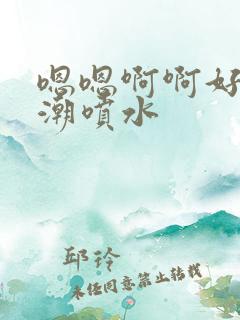 嗯嗯啊啊好
潮喷水
邱玲
未经同意禁止转载